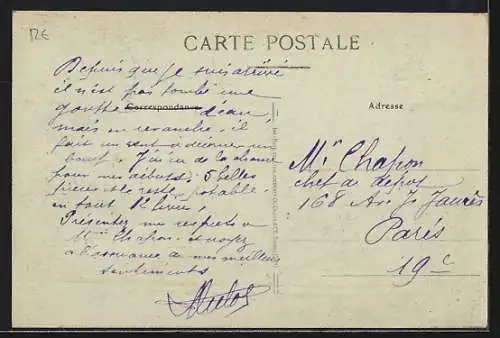 12€
CARTE POSTALE
Depuis que je suis arrivé
il n'est pas tombé une
goutte d'eau,
Correspondance
mais en revanche, il
fait un vent a décorner un
boeuf. J'ai eu de la chance
pour mes débuts. 5 belles
pièces et le reste potable.
en tout
Présentez mes respects a
Mme Chapon. et croyez
a l'assurance de mes meilleurs
sentiments
Adresse
Mr Chapon
chef de depot
168 Av. J. Jaurès
Paris
19e